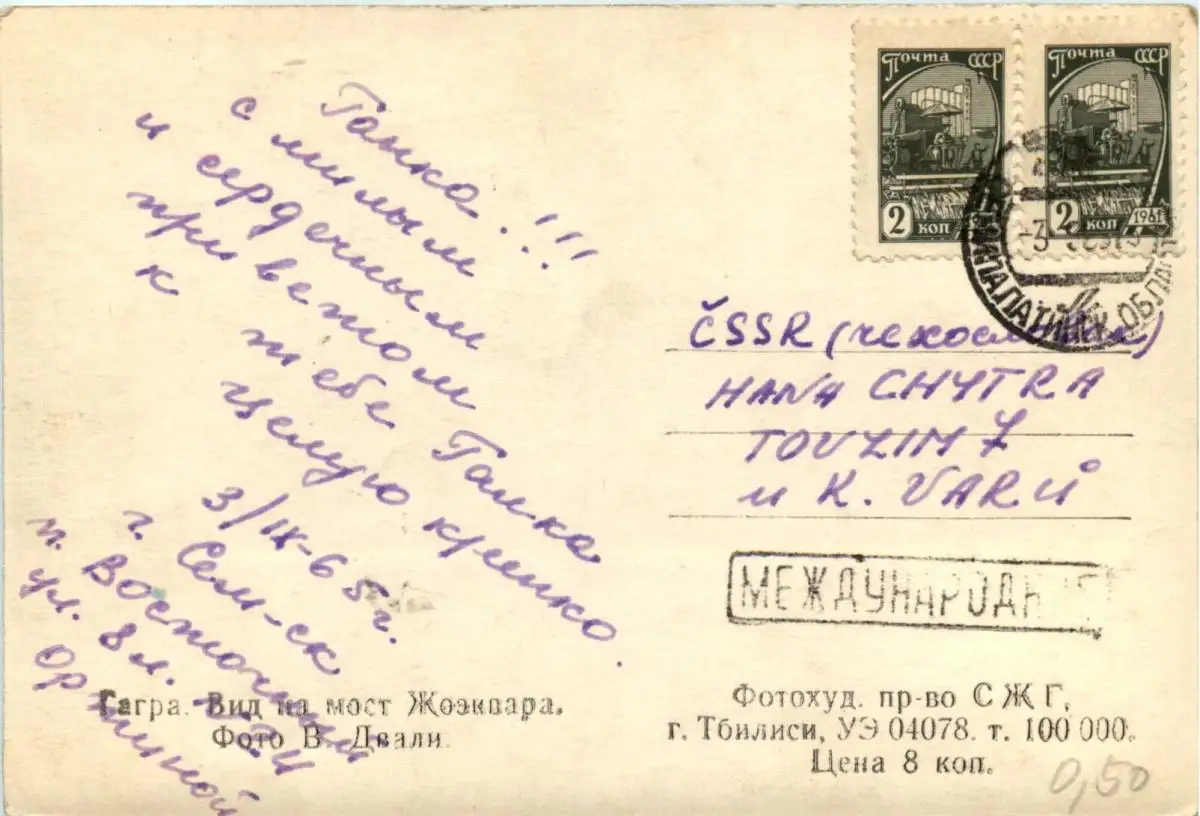 Ганка!!!
с милым
и сердечным
приветом
к тебе Галка
целую крепко.
3/IX-65 г.
г. Сем-ск
п. Восточный
ул. 8 л.
Почта СССР
2 коп
Почта СССР
2 коп 1961
СЕМИПАЛАТИНСК ОБЛ
ČSSR (Чехословакия)
HANA CHYTRA
TOUZIM 7
u K. VARŮ
МЕЖДУНАРОДН
Гагра. Вид на мост Жоэквара.
Фото В. Двали.
Фотохуд. пр-во СЖГ,
г. Тбилиси, УЭ 04078. т. 100 000.
Цена 8 коп.
0,50